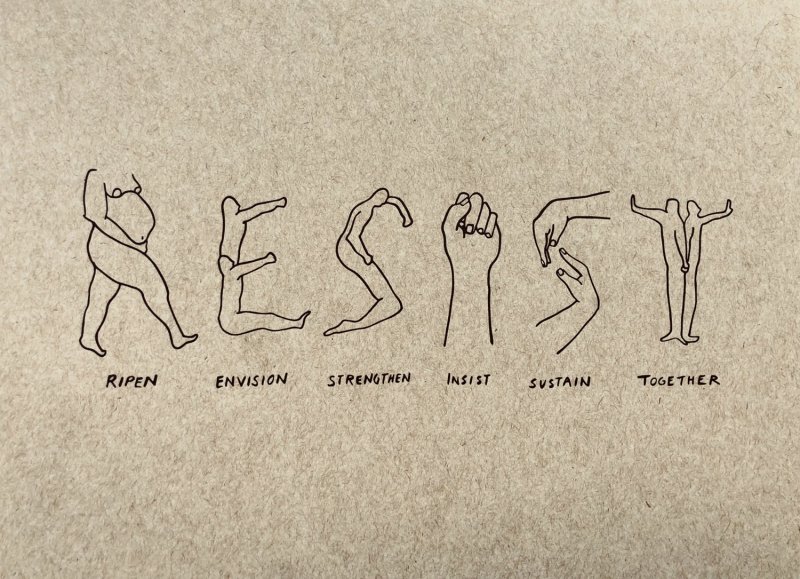 RESIST
RIPEN ENVISION STRENGTHEN INSIST SUSTAIN TOGETHER